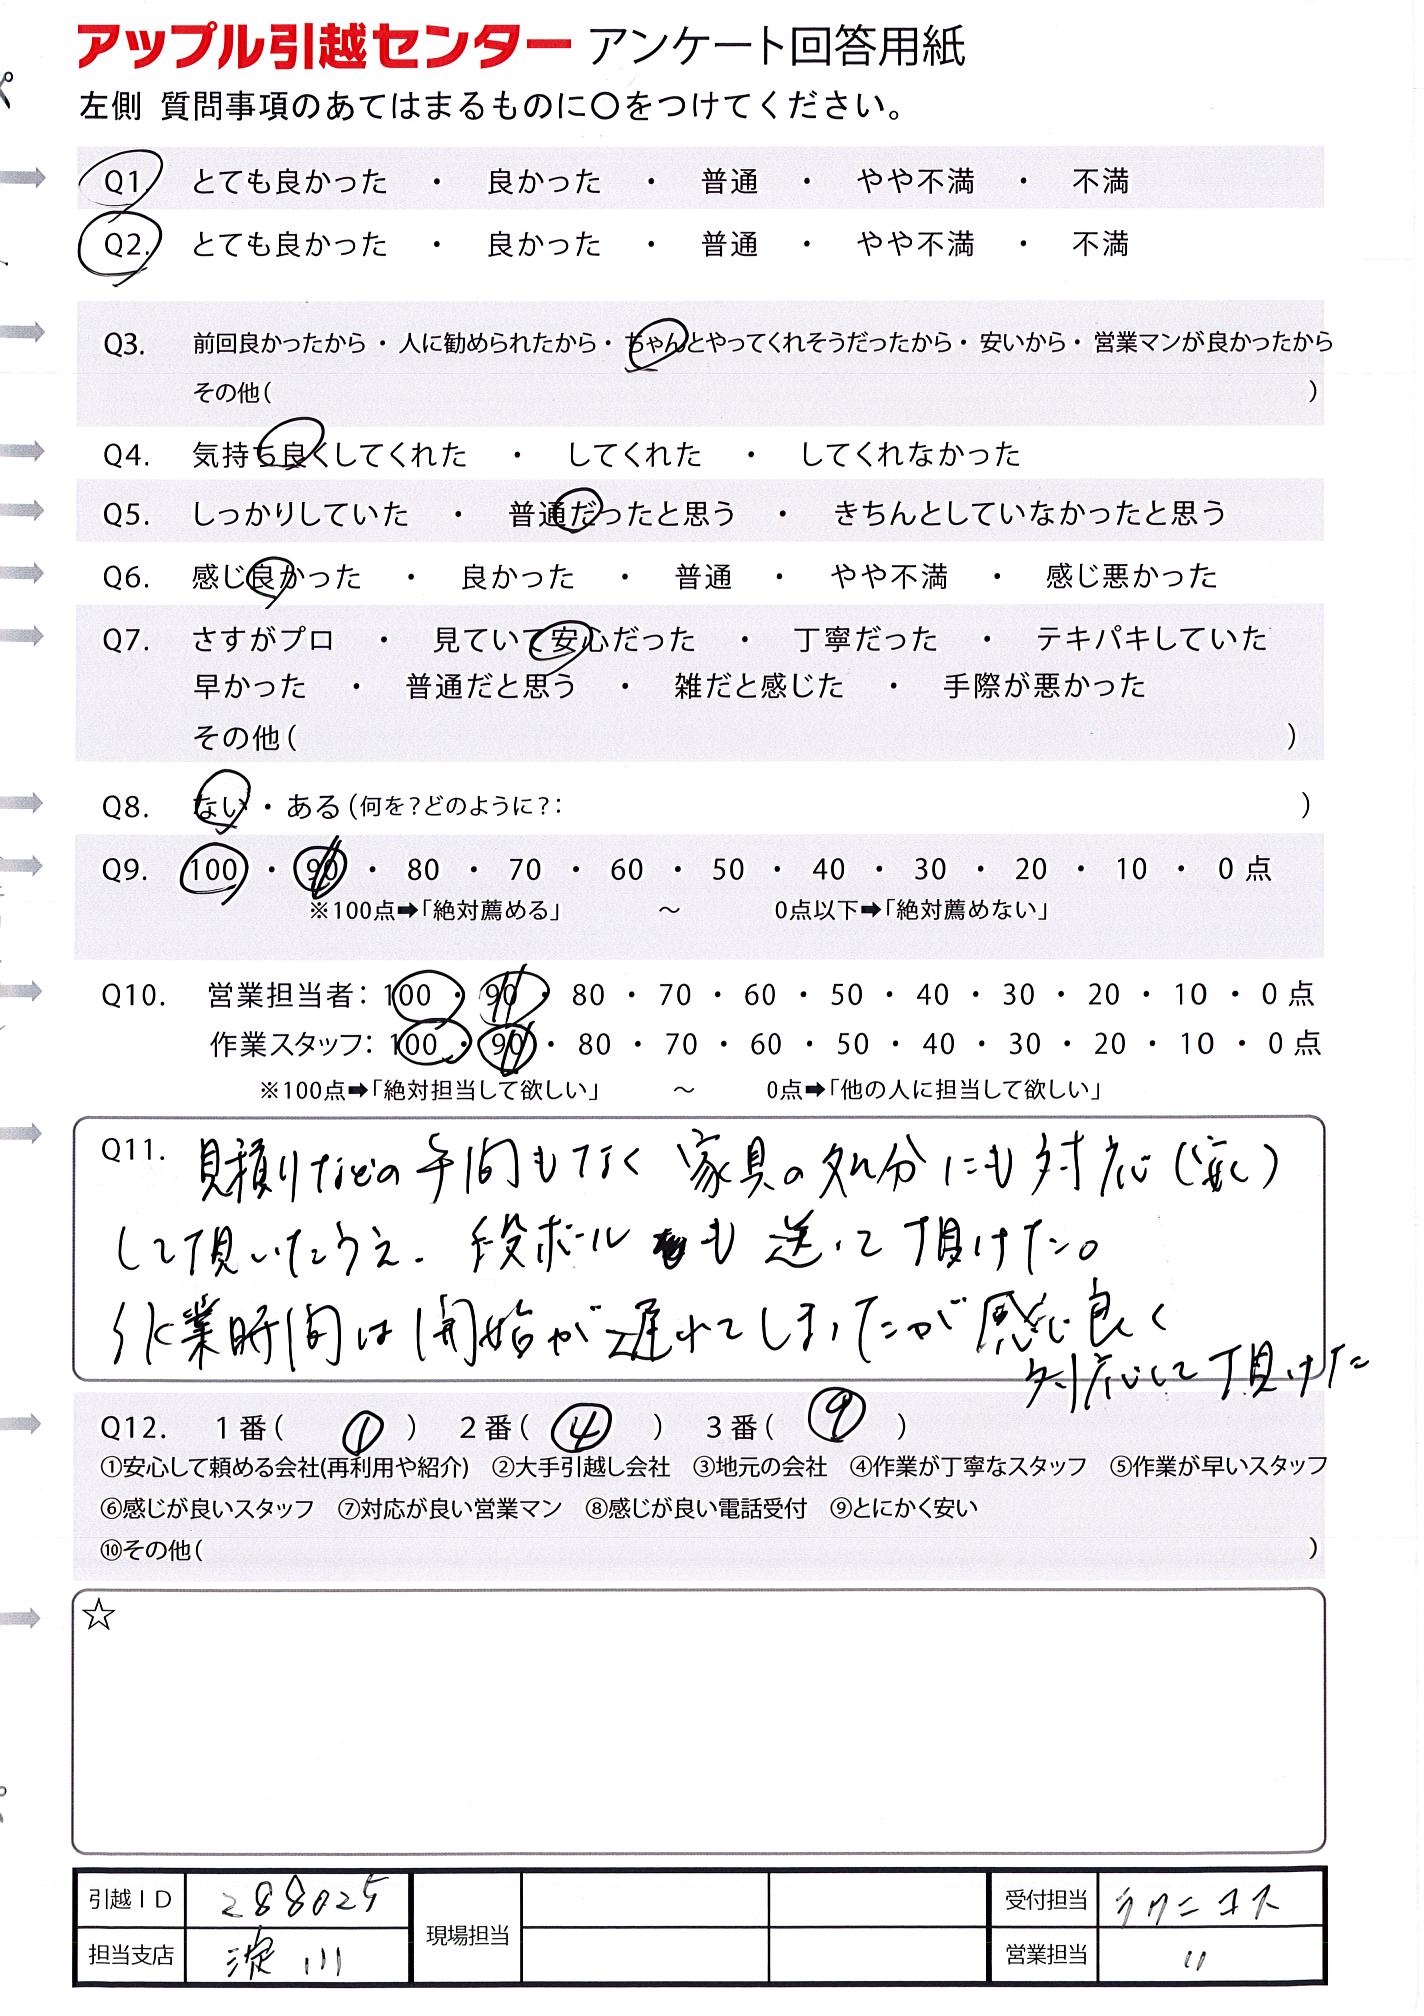 アップル引越センター アンケート回答用紙
左側 質問事項のあてはまるものに〇をつけてください。
Q1. とても良かった ・ 良かった ・ 普通 ・ やや不満 ・ 不満
Q2. とても良かった ・ 良かった ・ 普通 ・ やや不満 ・ 不満
Q3. 前回良かったから・人に勧められたから・ちゃんとやってくれそうだったから・安いから・営業マンが良かったから
その他( )
Q4. 気持ち良くしてくれた ・ してくれた ・ してくれなかった
Q5. しっかりしていた ・ 普通だったと思う ・ きちんとしていなかったと思う
Q6. 感じ良かった ・ 良かった ・ 普通 ・ やや不満 ・ 感じ悪かった
Q7. さすがプロ ・ 見ていて安心だった ・ 丁寧だった ・ テキパキしていた
早かった ・ 普通だと思う ・ 雑だと感じた ・ 手際が悪かった
その他( )
Q8. ない・ある(何を?どのように?: )
Q9. 100 ・ 90 ・ 80 ・ 70 ・ 60 ・ 50 ・ 40 ・ 30 ・ 20 ・ 10 ・ 0 点
※100点➡「絶対薦める」 ～ 0点以下➡「絶対薦めない」
Q10. 営業担当者: 100 ・ 90 ・ 80 ・ 70 ・ 60 ・ 50 ・ 40 ・ 30 ・ 20 ・ 10 ・ 0 点
作業スタッフ: 100 ・ 90 ・ 80 ・ 70 ・ 60 ・ 50 ・ 40 ・ 30 ・ 20 ・ 10 ・ 0 点
※100点➡「絶対担当して欲しい」 ～ 0点➡「他の人に担当して欲しい」
Q11. 見積りなどの手間もなく 家具の処分にも対応(安く)
して頂いたうえ、段ボールも送って頂けた。
作業時間は開始が遅れてしまったが感じ良く
対応して頂けた
Q12. 1番( ① ) 2番( ④ ) 3番( ⑨ )
①安心して頼める会社(再利用や紹介) ②大手引越し会社 ③地元の会社 ④作業が丁寧なスタッフ ⑤作業が早いスタッフ
⑥感じが良いスタッフ ⑦対応が良い営業マン ⑧感じが良い電話受付 ⑨とにかく安い
⑩その他( )
☆
引越ID 288025 現場担当 受付担当 ラクニコス
担当支店 淀川 営業担当 〃